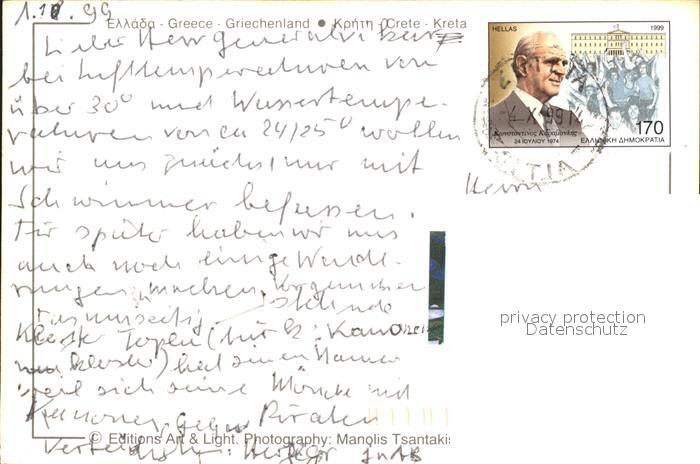 1.10.99
Ελλάδα - Greece - Griechenland ● Κρήτη - Crete - Kreta
Lieber Herr Generalvikar
bei Lufttemperaturen von
über 30° und Wassertempe-
raturen von ca 24/25° wollen
wir uns zunächst nur mit
Schwimmen befassen.
Für später haben wir uns
auch noch einige Wande-
rungen machen.
umseitig stehende
Kloster Toplou (türk.: Kanonen
kloster) hat seinen Namen
weil sich seine Mönche mit
Kanonen gegen Piraten
© Editions Art & Light. Photography: Manolis Tsantakis
Herrn
HELLAS
1999
Κωνσταντίνος Καραμανλής
24 ΙΟΥΛΙΟΥ 1974
170
ΕΛΛΗΝΙΚΗ ΔΗΜΟΚΡΑΤΙΑ
privacy protection
Datenschutz